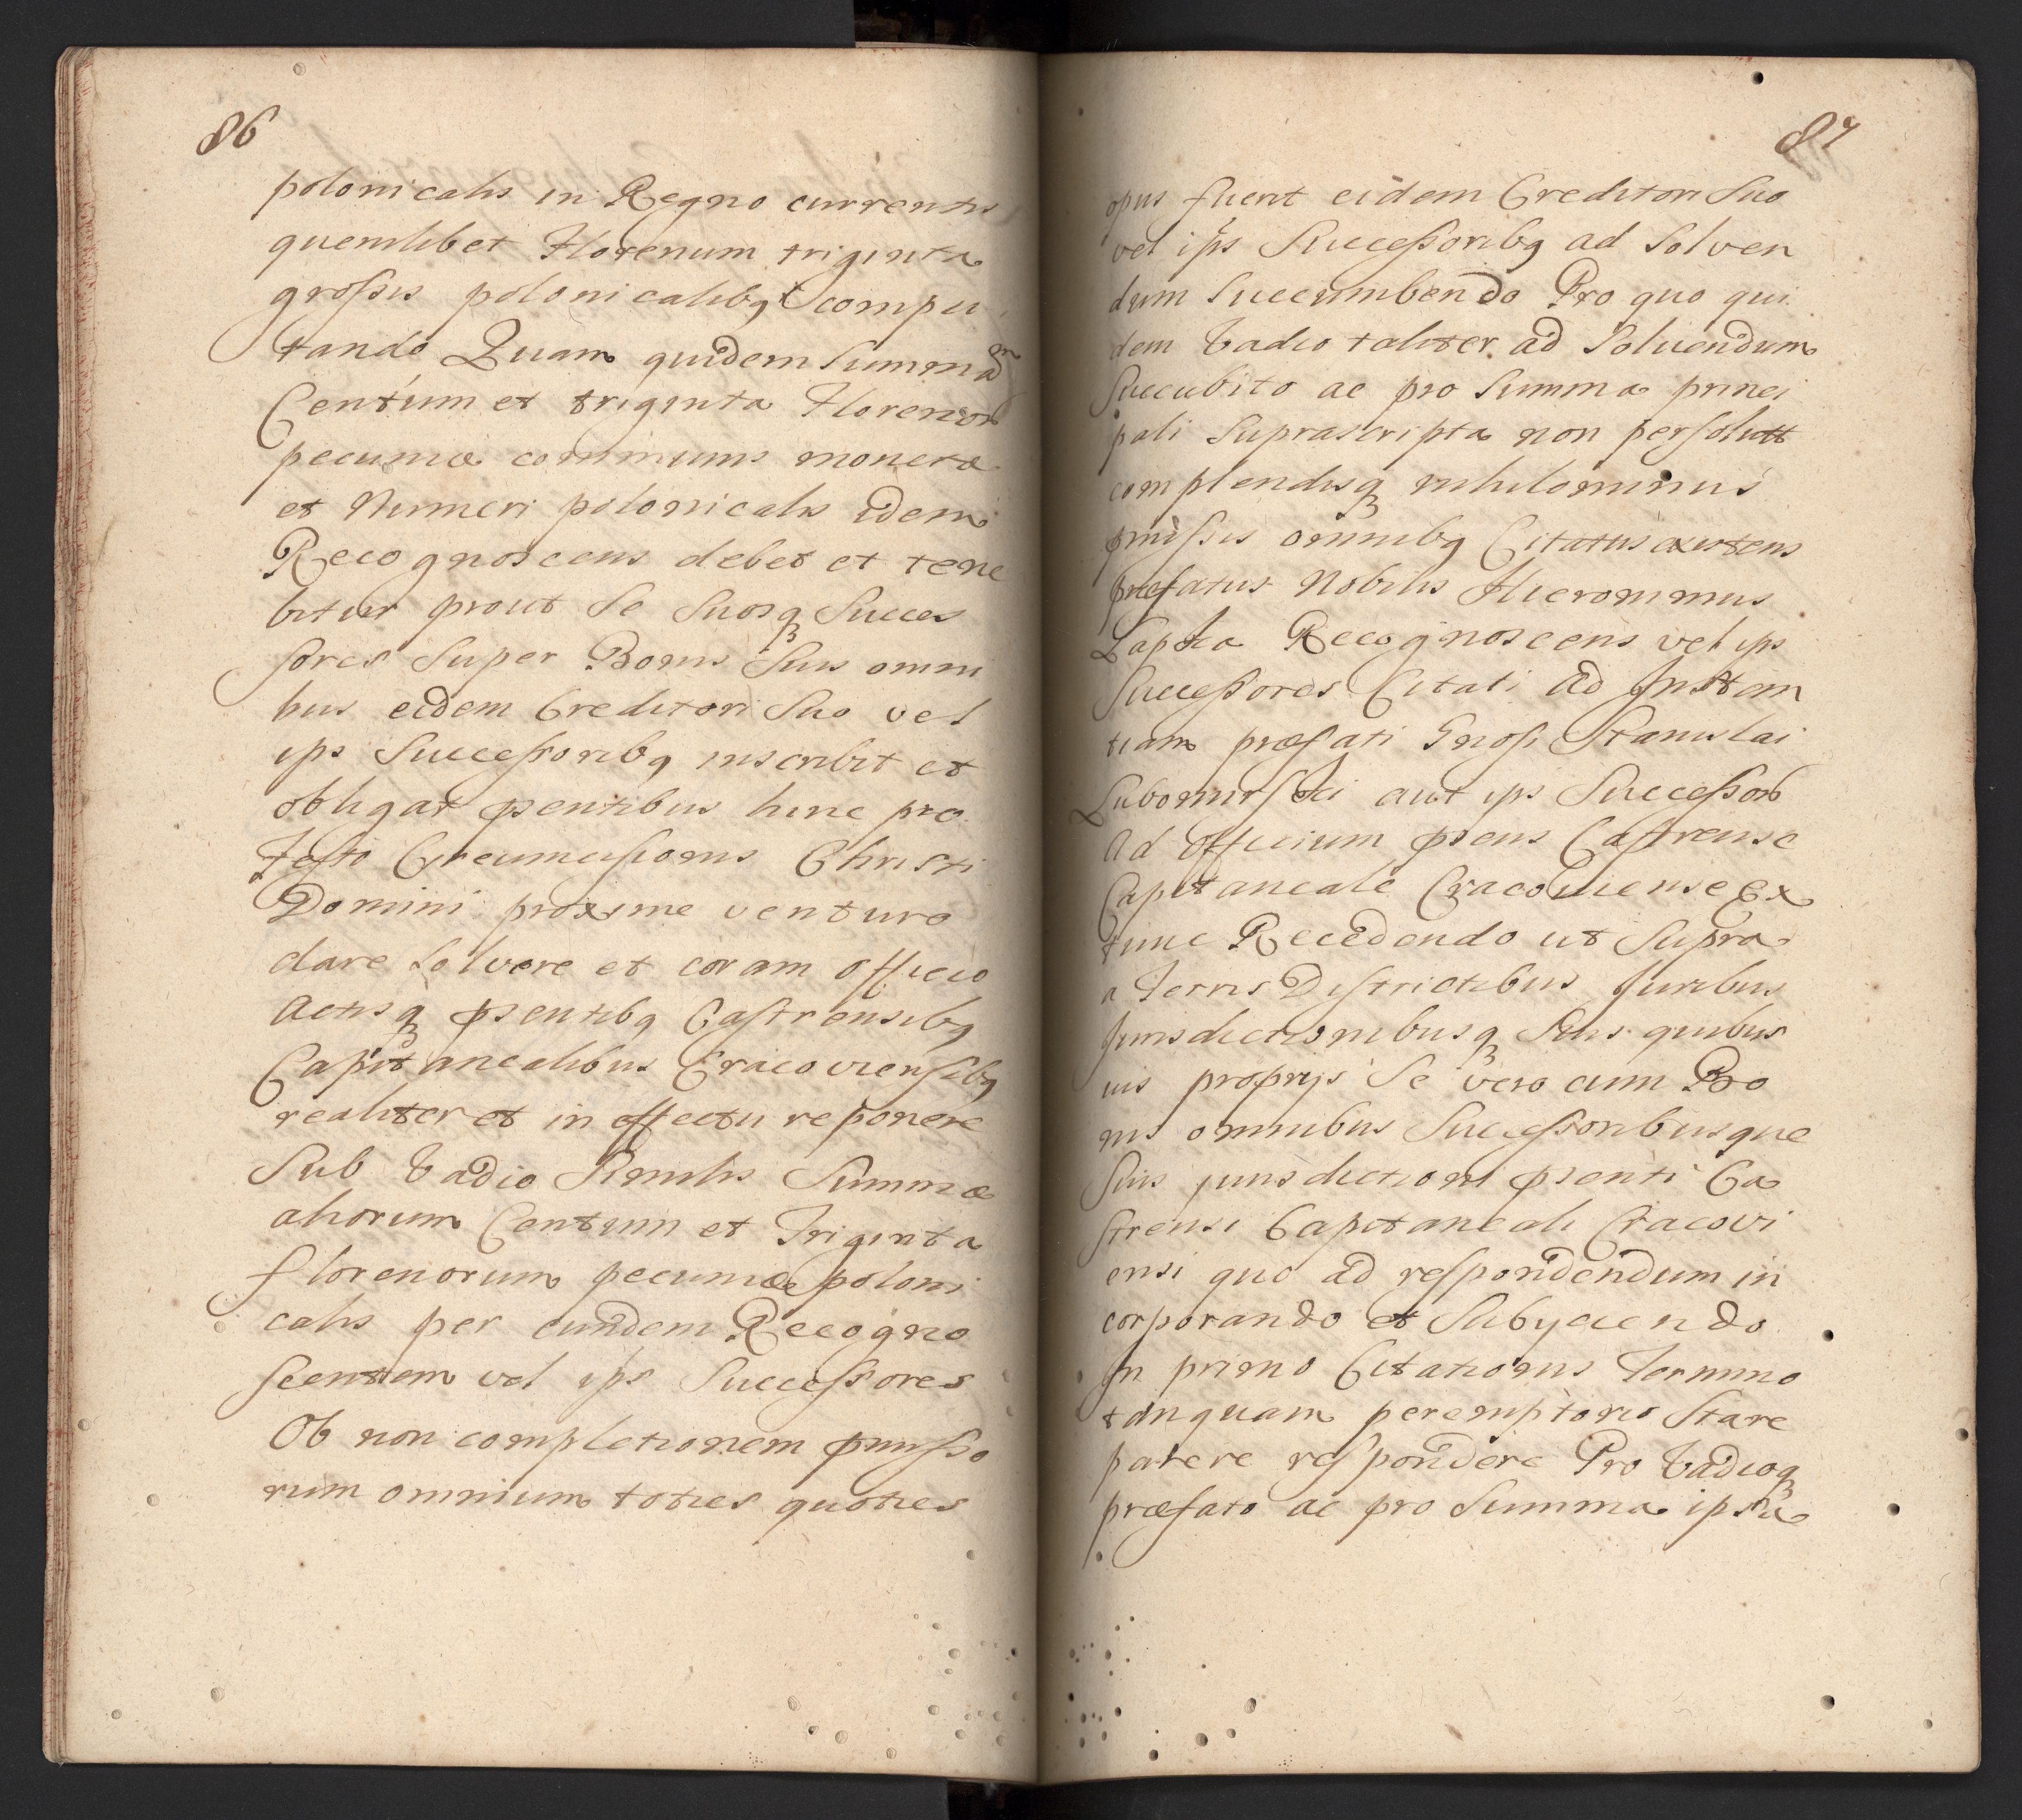 86
polonicalis in Regno currentis
quemlibet Florenum triginta
grossis polonicalibq compu
tando Quam quidem Summam
Centum et triginta Florenor
pecuniæ communis monetæ
et Numeri polonicalis idem
Recognoscens debet et tene
bitur prout Se Suosq Succes
sores Super Bonis Suis omni
bus eidem Creditori Suo vel
ips Successoribq inscribit et
obligat psentibus hinc pro
Festo Circumcisionis Christi
Domini proxime venturo
dare Solvere et coram officio
Actisq psentibq Castrensibq
Capitanealibus Cracoviensibq
realiter et in effectu reponere
Sub Vadio Similis Summæ
aliorum Centum et Triginta
florenorum pecuniæ poloni
calis per eundem Recogno
scentem vel ips Successores
Ob non completionem pmisso
rum omnium toties quoties
87
opus fuerit eidem Creditori Suo
vel ips Successoribq ad Solven
dum Succumbendo Pro quo qui
dem Vadio taliter ad Solvendum
Succubito ac pro Summa princi
pali Suprascripta non persolutt
complendisq nihilominus
pmissis omnibq Citatus existens
præfatus Nobilis Hieronimus
Lapka Recognoscens vel ips
Successores Citati ad Instan
tiam præfati Gnosi Stanislai
Lubomirski aut ips Successor
Ad Officium psens Castrense
Capitaneale Cracoviense Ex
tunc Recedendo ut Supra
a Terris Districtibus Juribus
Jurisdictionibusq Suis quibus
vis proprijs Se vero cum Bo
nis omnibus Successoribusque
Suis jurisdictioni psenti Ca
strensi Capitaneali Cracovi
ensi quo ad respondendum in
corporando et Subyciendo
In primo Citationis Termino
tanquam peremptorio Stare
parere respondere Pro Vadioq
præfato ac pro Summa ipsa